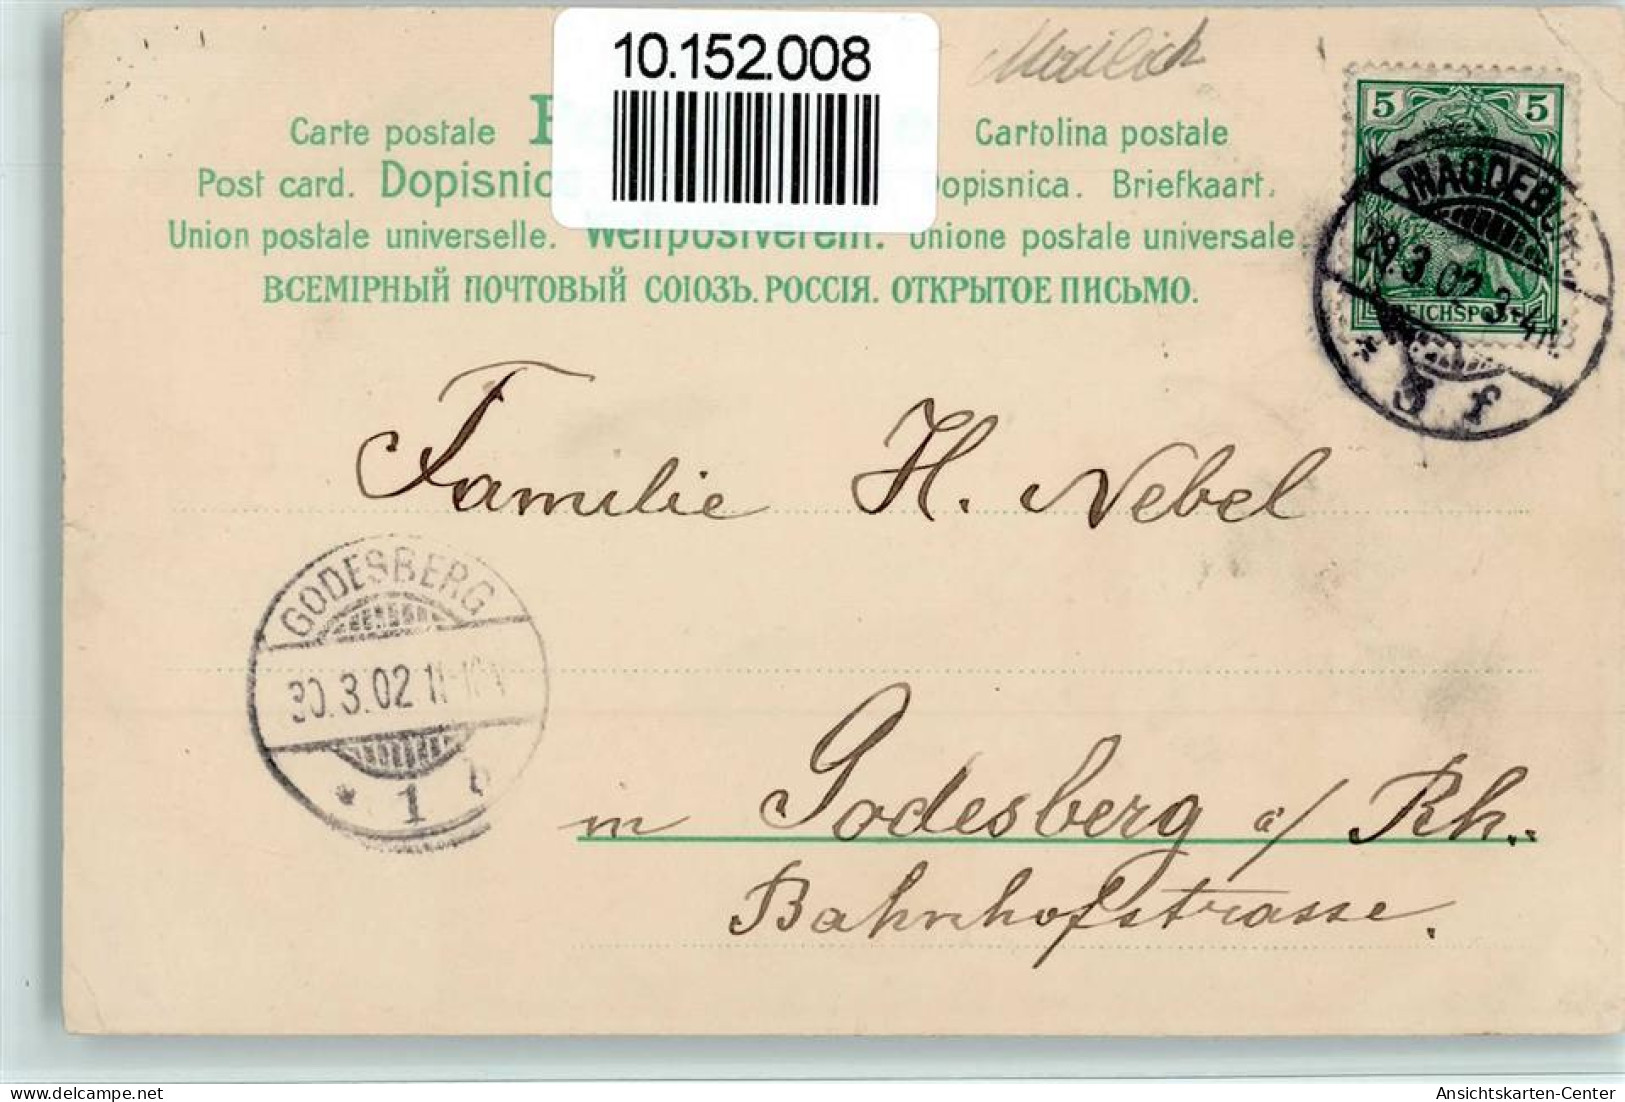 10.152.008
Carte postale Cartolina postale
Post card. Dopisnic opisnica. Briefkaart.
Union postale universelle. Weltpostverein. Unione postale universale
ВСЕМІРНЫЙ ПОЧТОВЫЙ СОЮЗЪ. РОССІЯ. ОТКРЫТОЕ ПИСЬМО.
5 5
REICHSPOST
MAGDEBURG
29.3.02 3-4N.
* 3 f
Familie H. Nebel
GODESBERG
30.3.02 11-12V
* 1 b
in Godesberg a/ Rh.
Bahnhofstrasse.
delcampe.net
Ansichtskarten-Center